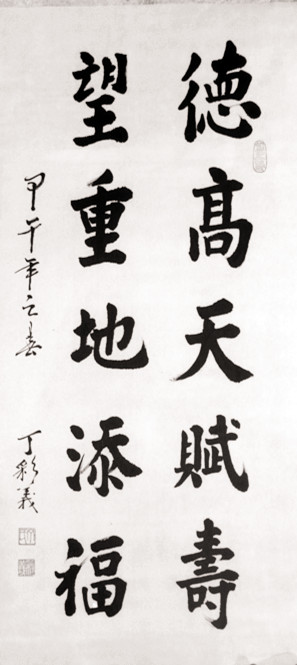 德高天賦壽
望重地添福
甲午年之春 丁彩義